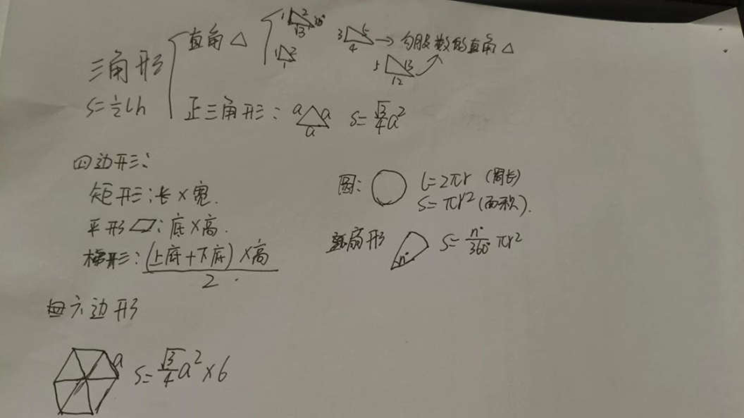 三角形
S=½Lh
直角△
1 2 √3 30°
1 √2 1
3 5 4 → 勾股数的直角△
5 13 12
正三角形: a a a S=√3/4 a²
四边形:
矩形:长×宽.
平形▱:底×高.
梯形:(上底+下底)×高/2.
圆: L=2πr (周长)
S=πr² (面积).
扇形 n° S=n°/360 πr²
六边形
a S=√3/4 a²×6